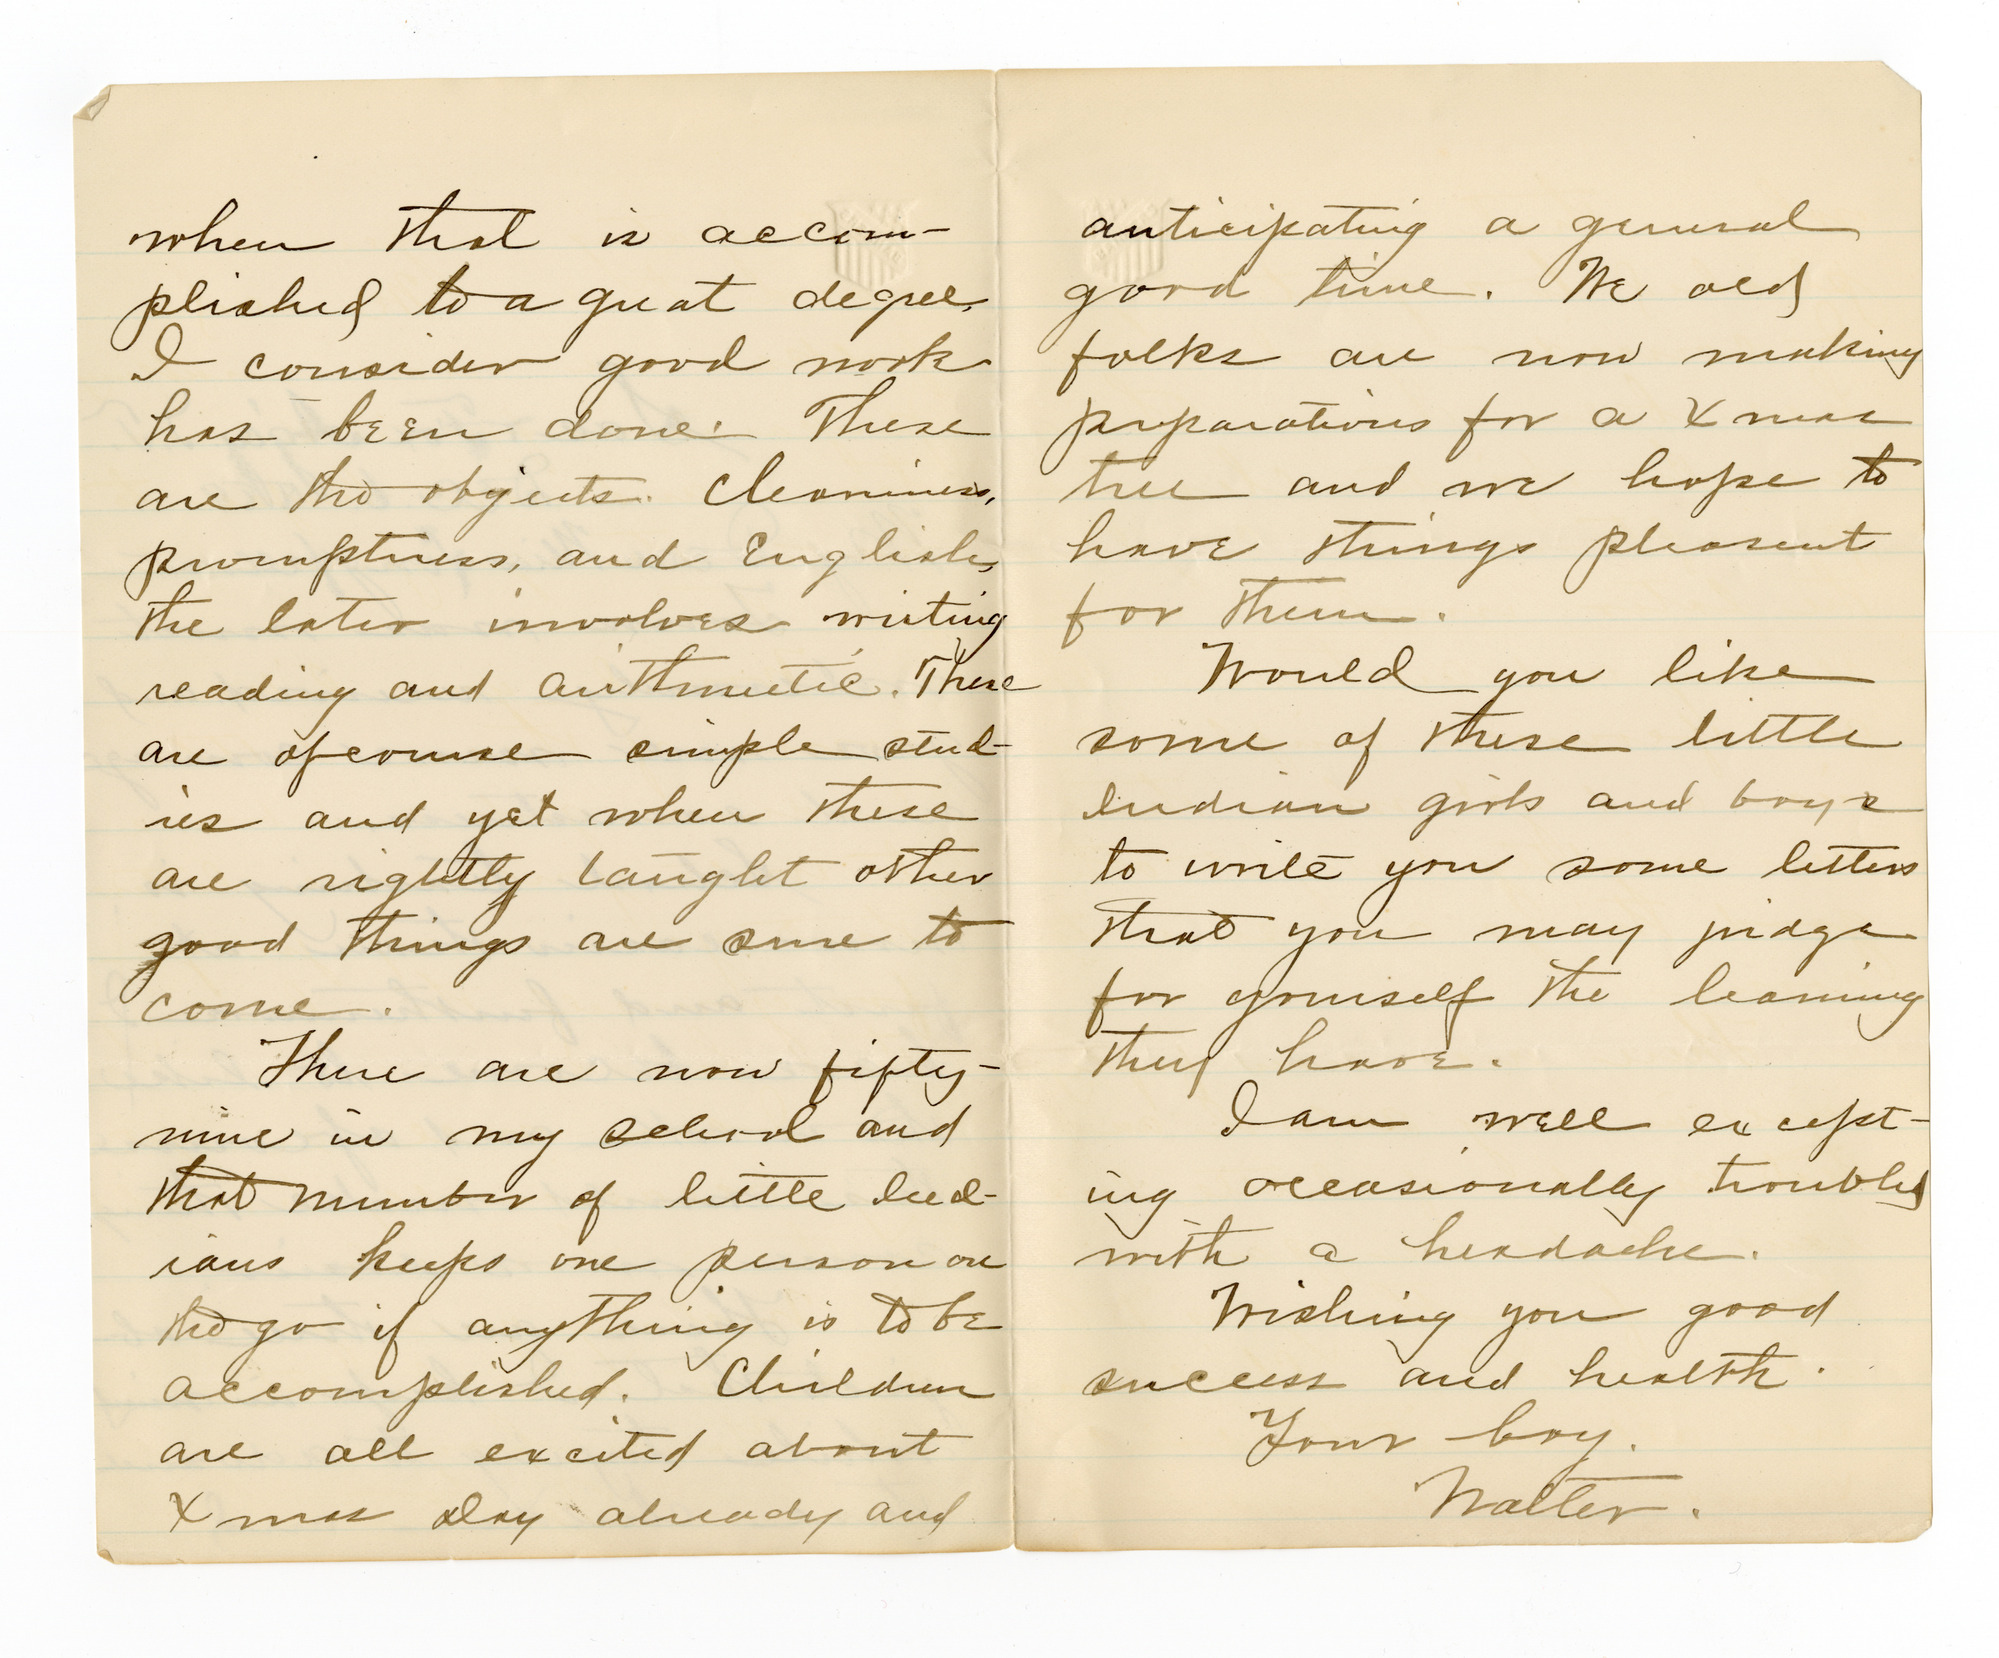 when that is accom-
plished to a great degree,
I consider good work
has been done. These
are the objects. Cleaniness,
promptness, and English,
the later involves writing
reading and arithmetic. These
are ofcourse simple stud-
ies and yet when these
are rightly taught other
good things are sure to
come.
There are now fifty-
nine in my school and
that number of little Ind-
ians keeps one person on
the go if anything is to be
accomplished. Children
are all excited about
Xmas Day already and
anticipating a general
good time. We old
folks are now making
preparations for a Xmas
tree and we hope to
have things pleasent
for them.
Would you like
some of these little
Indian girls and boys
to write you some letters
that you may judge
for yourself the learning
they have.
I am well except-
ing occasionally troubled
with a headache.
Wishing you good
success and health.
Your boy.
Walter.